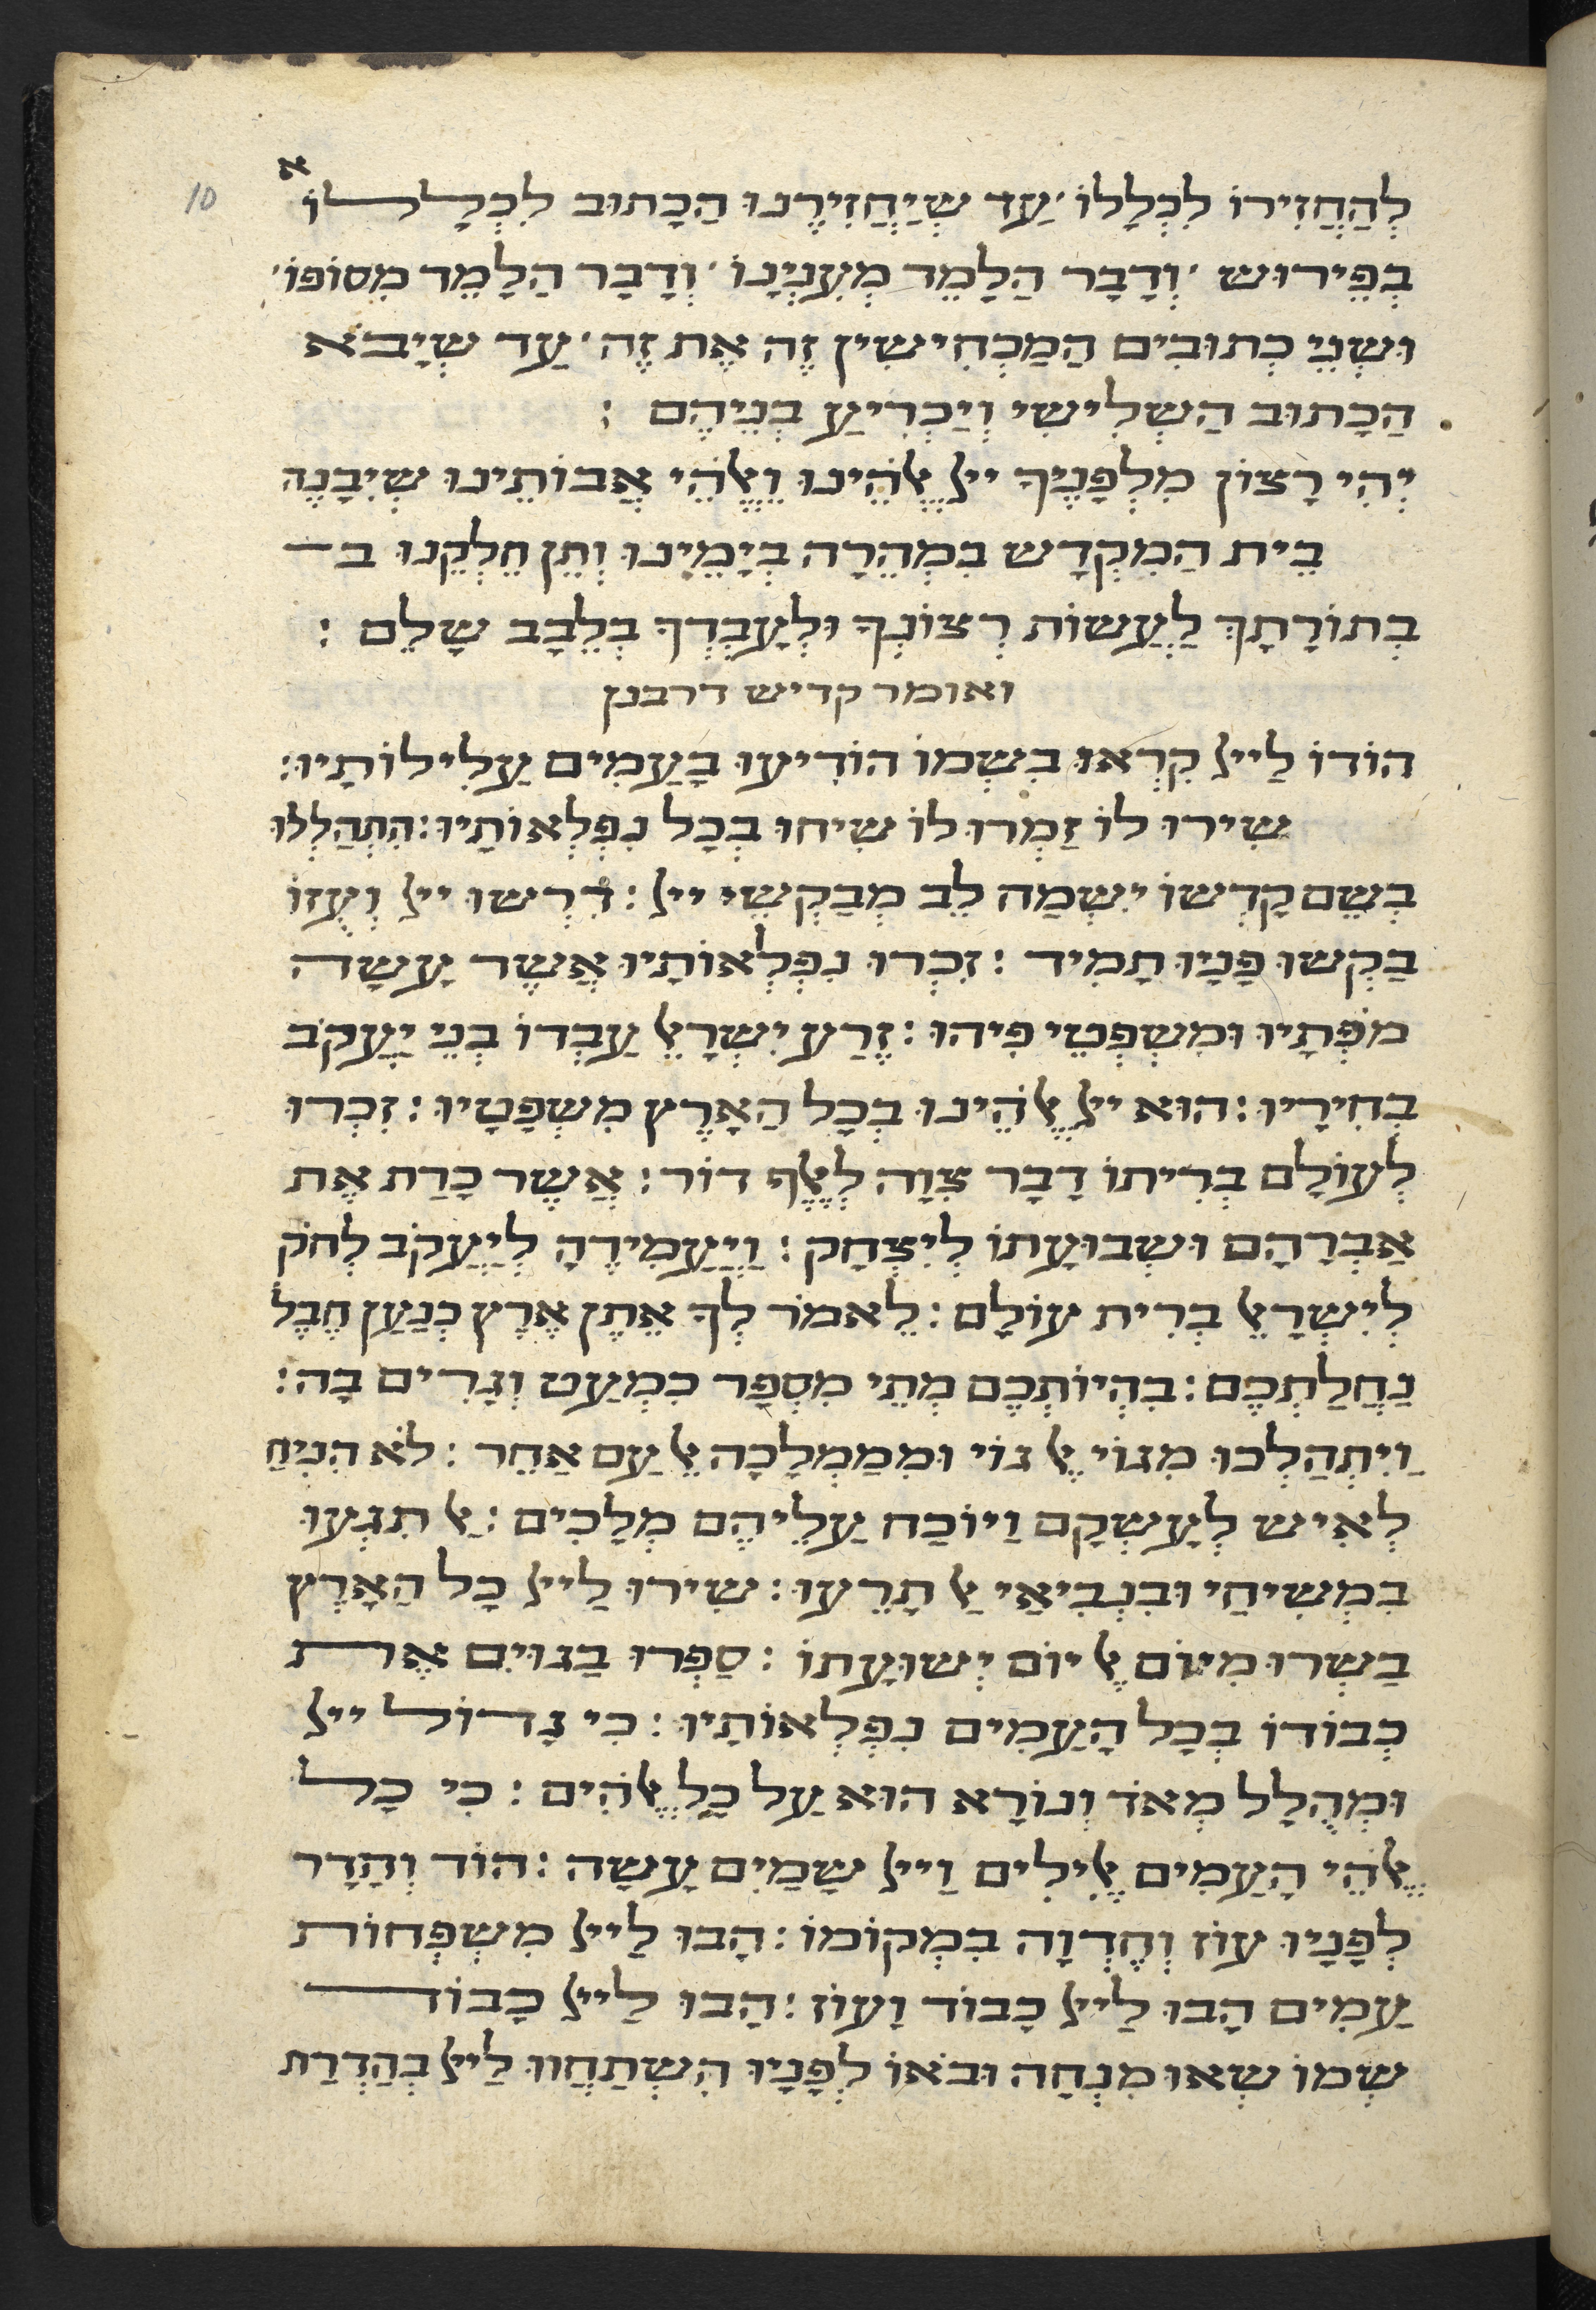 10
א
לְהַחֲזִירוֹ לִכְלָלוֹ ׳ עַד שֶׁיַחֲזִירֶנוּ הַכָתוּב לִכְלָלוֹ
בְפֵירוּש ׳ וְדָבָר הַלָמֵד מֵעִנְיָנוֹ ׳ וְדָבָר הַלָמֵד מִסוֹפוֹ ׳
וּשְנֵי כְתוּבִים הַמַכְחִישִין זֶה אֶת זֶה ׳ עַד שֶיָבֹא
הַכָתוּב הַשְלִישִי וְיַכְרִיעַ בְנֵיהֶם :
יְהִי רָצוֹן מִלְפָנֶיךָ ייל אֱלֹהֵינוּ וֵאֱלֹהֵי אֲבוֹתֵינוּ שֶיִבָנֶה
בֵית הַמִקְדָש בִמְהֵרָה בְיָמֵינוּ וְתֵן חֵלְקֵנוּ ב
בְתוֹרָתָךְ לַעֲשוֹת רְצוֹנְךָ וּלְעָבְדְךָ בְלֵבָב שָלֵם :
ואומר קדיש דרבנן
הוֹדוֹ לַייל קִרְאוּ בִשְמוֹ הוֹדִיעוּ בָעַמִים עֲלִילוֹתָיו :
שִירוּ לוֹ זַמְרוּ לוֹ שִיחוּ בְכָל נִפְלְאוֹתָיו : הִתְהַלְלוּ
בְשֵם קָדְשוֹ יִשְמַח לֵב מְבַקְשֵי ייל : דִרְשוּ ייל וְעֻזוֹ
בַקְשוּ פָנָיו תָמִיד : זִכְרוּ נִפְלְאוֹתָיו אֲשֶר עָשָה
מֹפְתָיו וּמִשְפְטֵי פִיהוּ : זֶרַע יִשְרָאֵל עַבְדוֹ בְנֵי יַעֲקֹב
בְחִירָיו : הוּא ייל אֱלֹהֵינוּ בְכָל הַאָרֶץ מִשְפָטָיו : זִכְרוּ
לְעוֹלָם בְרִיתוֹ דָבָר צִוָה לְאֶלֶף דוֹר : אֲשֶר כָרַת אֶת
אַבְרָהָם וּשְבוּעָתוֹ לְיִצְחָק : וַיַעֲמִידֶהָ לְיַעֲקֹב לְחֹק
לְיִשְרָאֵל בְרִית עוֹלָם : לֵאמֹר לְךָ אֶתֵן אֶרֶץ כְנַעַן חֶבֶל
נַחֲלַתְכֶם : בִהְיוֹתְכֶם מְתֵי מִסְפָר כִמְעַט וְגָרִים בָה :
וַיִתְהַלְכוּ מִגוֹי אֶל גוֹי וּמִמַמְלָכָה אֶל עַם אַחֵר : לֹא הִנִיחַ
לְאִיש לְעָשְקָם וַיוֹכַח עַלֵיהֶם מְלָכִים : אַל תִגְעוּ
בִמְשִיחַי וּבִנְבִיאַי אַל תָרֵעוּ : שִירוּ לַייל כָל הַאָרֶץ
בַשְרוּ מִיוֹם אֶל יוֹם יְשוּעָתוֹ : סַפְרוּ בַגוֹיִם אֶת
כְבוֹדוֹ בְכָל הָעַמִים נִפְלְאוֹתָיו : כִי גָדוֹל ייל
וּמְהֻלָל מְאֹד וְנוֹרָא הוּא עַל כָל אֱלֹהִים : כִי כָל
אֱלֹהֵי הָעַמִים אֱלִילִים וַייל שָמַיִם עָשָה : הוֹד וְהָדָר
לְפָנָיו עוֹז וְחֶדְוָה בִמְקוֹמוֹ : הָבוּ לַייל מִשְפְחוֹת
עַמִים הָבוּ לַייל כָבוֹד וָעוֹז : הָבוּ לַייל כָבוֹד
שְמוֹ שְאוּ מִנְחָה וּבֹאוֹ לְפָנָיו הִשְתַחֲווּ לַייל בְהַדְרַת